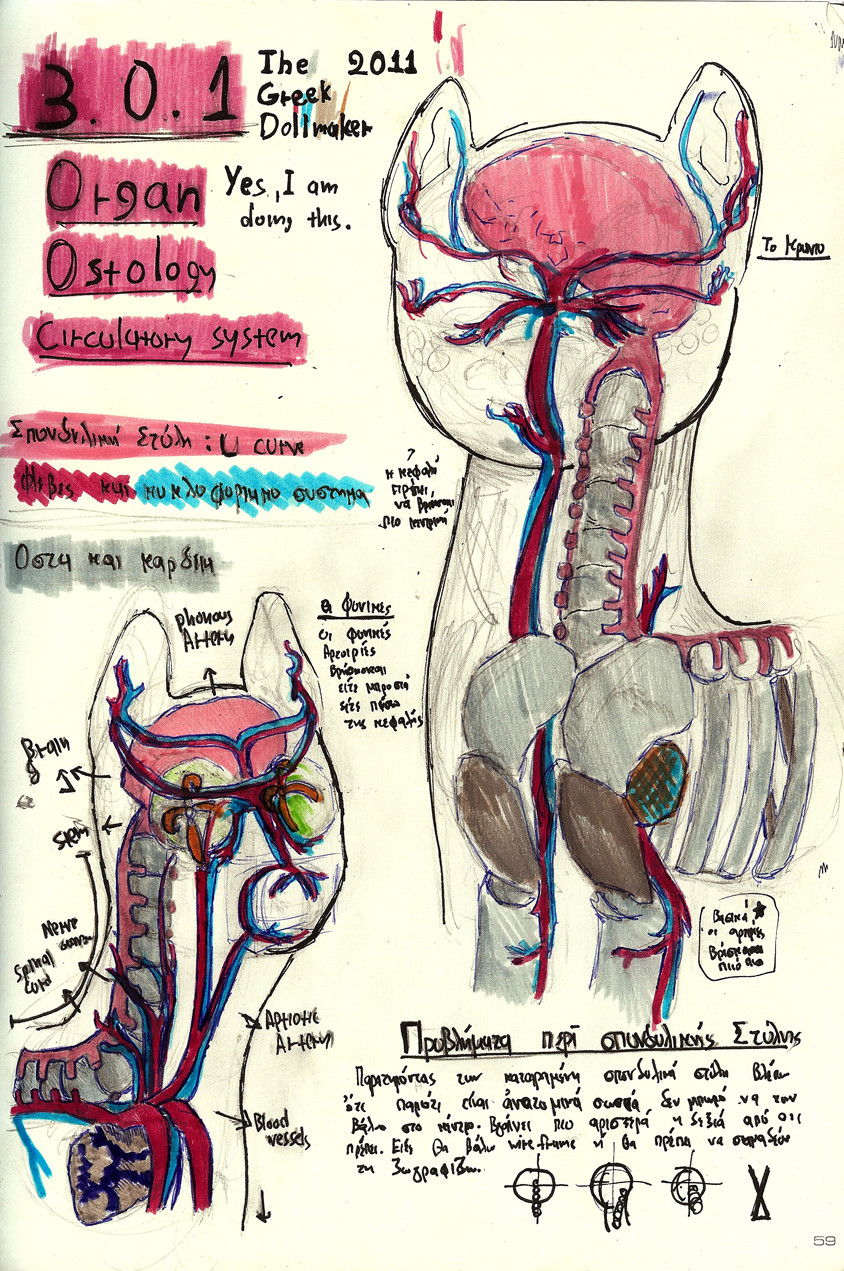 3.0.1
The 2011
Greek
Dollmaker
Organ
Ostology
Circulatory system
Yes, I am
doing this.
Το Κρανιο
Σπονδυλική Στύλη : U curve
Φλεβες και κυκλοφορικο συστημα
Οστα και καρδια
η κεφαλή
πρέπει
να βρισκεται
πιο κεντρικά
phonous
Artery
Οι Φονικες
οι φονικές
Αρτιρίες
βρίσκονται
είτε μπροστά
είτε πίσω
της κεφαλής
Brain
&
stem
Nerve
Spinal
Cord
Apriotic
Artery
Blood
vessels
Βασικά,
οι αρτηρίες
βρίσκονται
πιο
Προβλήματα περί σπονδυλικής Στύλης
Παρατηρόντας την καταραμένη σπονδυλικά στύλη βλέπω
ότι παρότι είναι ανατομικά σωστά δεν μπορώ να την
βάλω στο κέντρο. Βγαίνει πιο αριστερά ή δεξιά από ότι
πρέπει. Είτε θα βάλω wire-frame ή θα πρέπει να σταματήσω
να ζωγραφίζω.
59